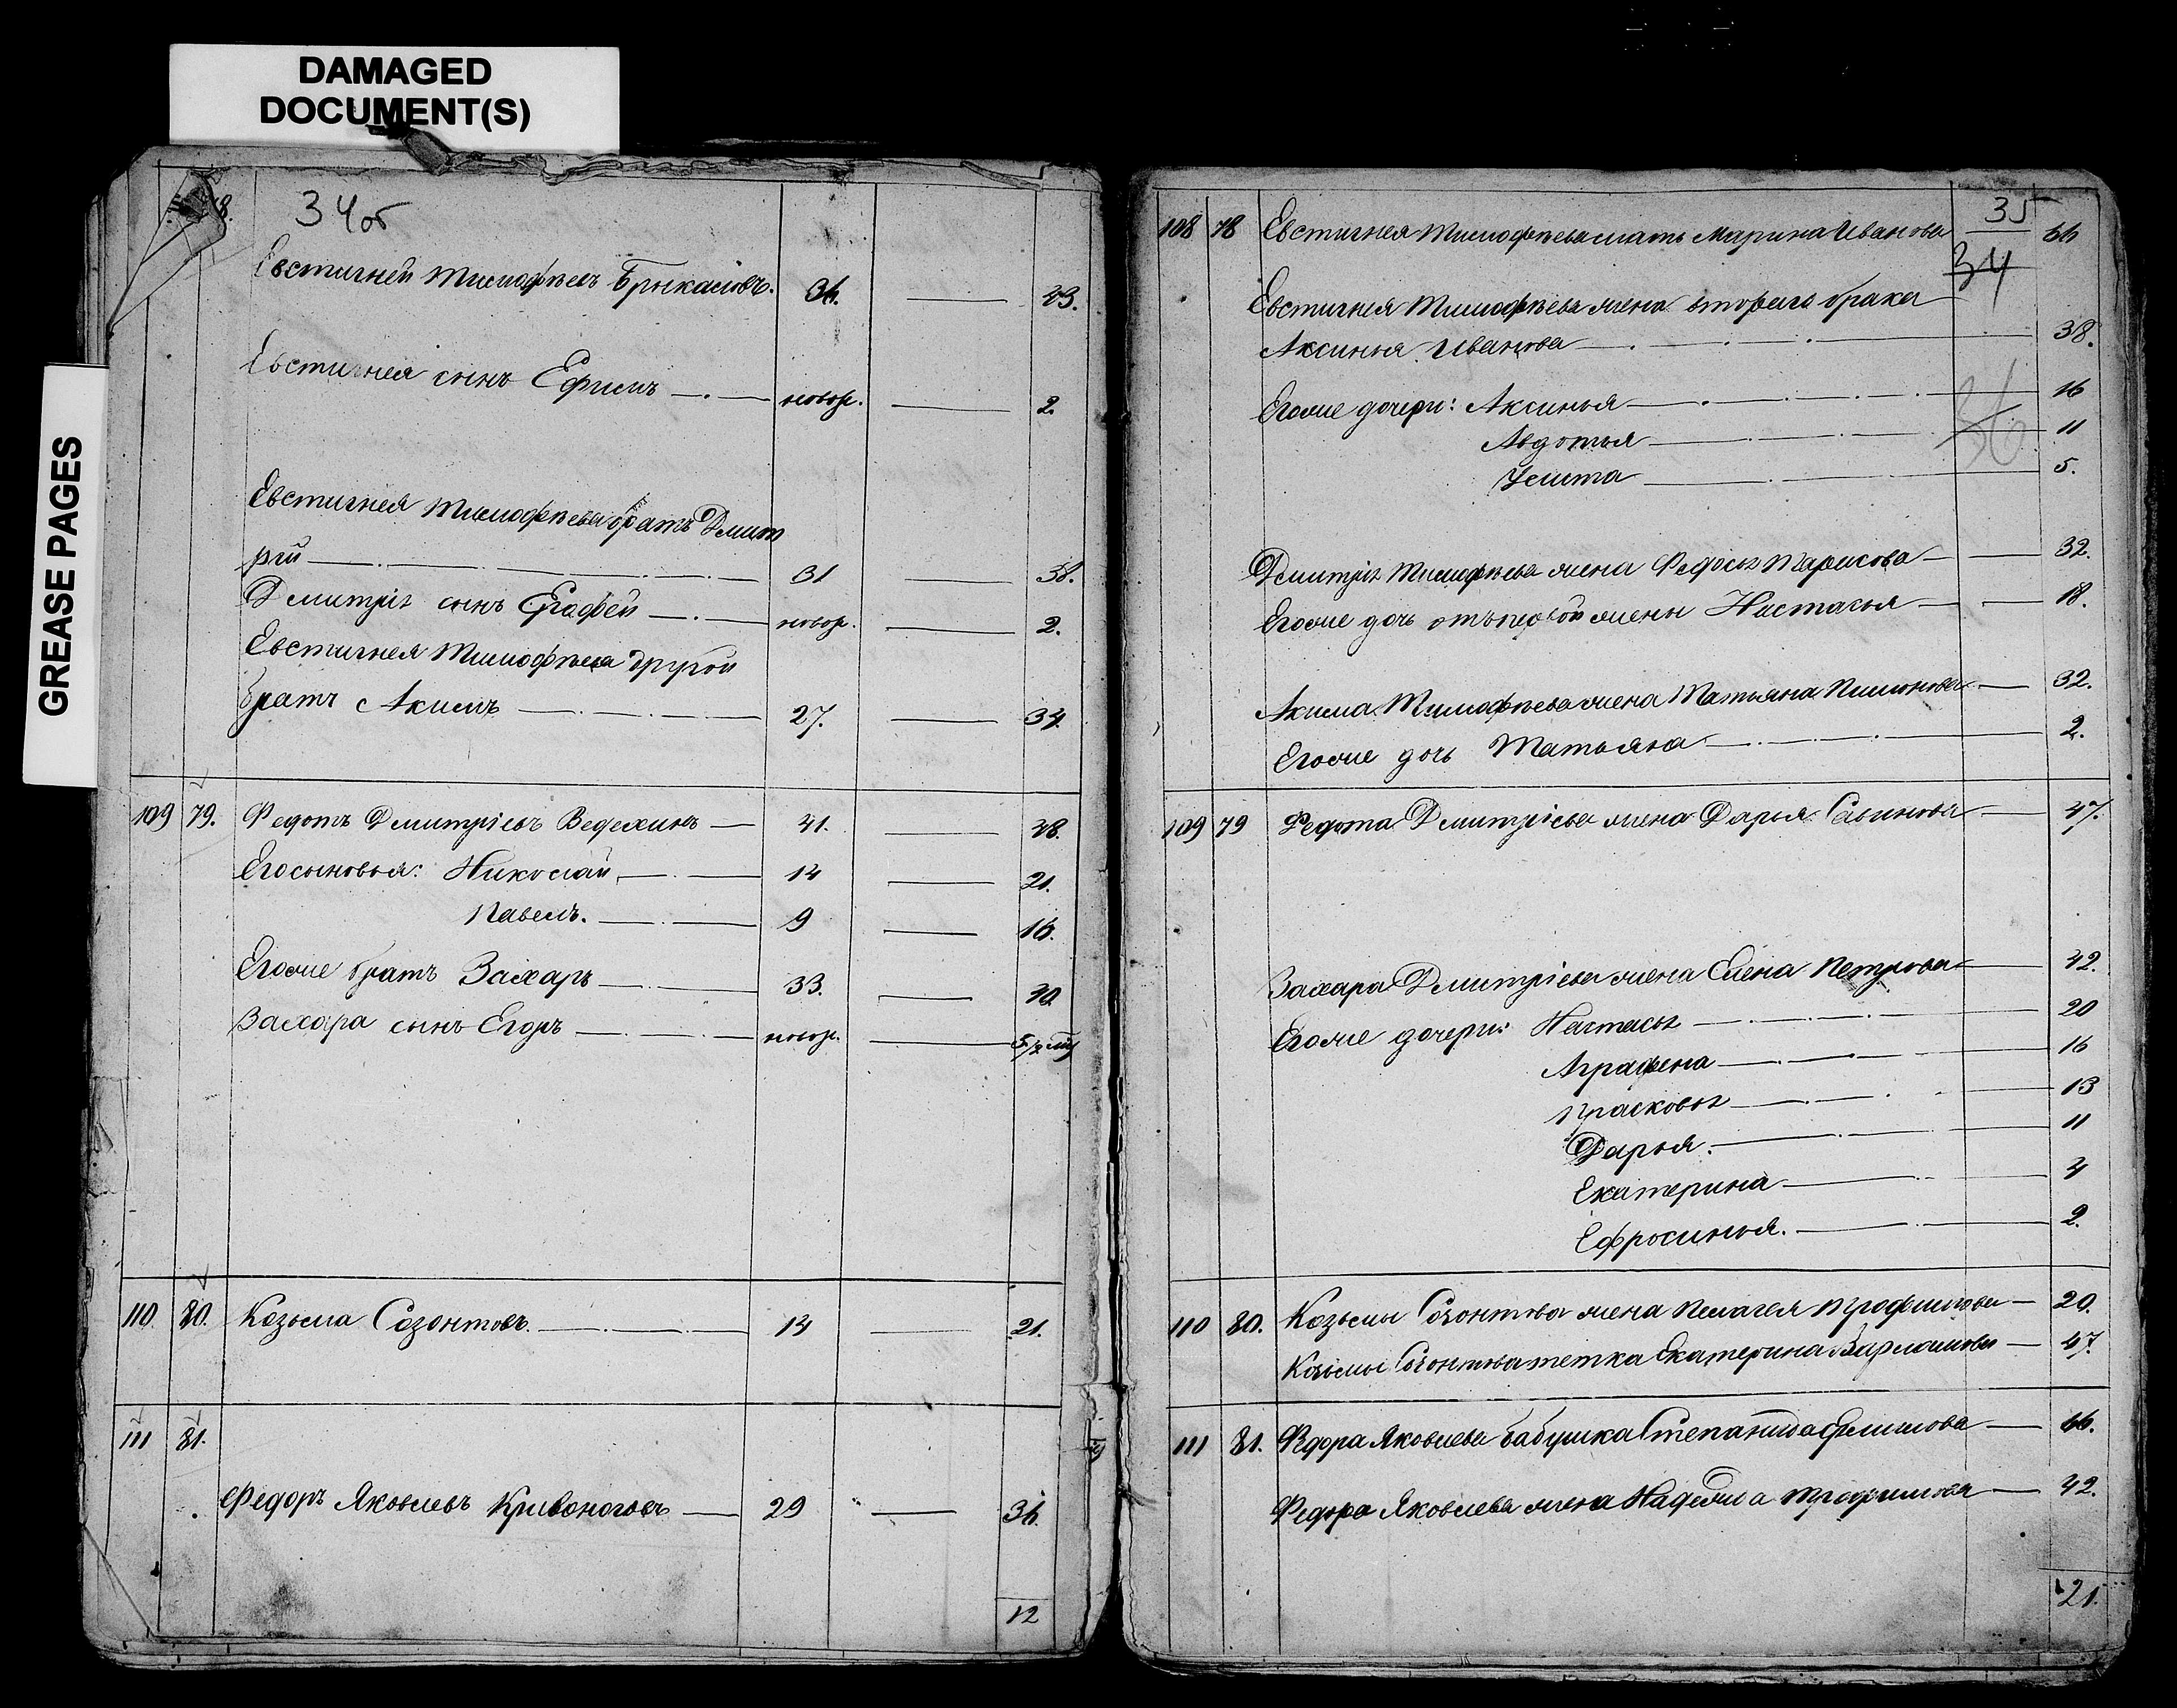 DAMAGED
DOCUMENT(S)
GREASE PAGES
34об
Евстигней Тимофеевъ Брыкаловъ. 36. — 43.
Евстигнея сынъ Ефимъ — новор. — 2.
Евстигнея Тимофеева братъ Дмит
рій — 31 — 38.
Дмитрія сынъ Ерафей — новор. — 2.
Евстигнея Тимофеева другой
братъ Акимъ — 27. — 34.
109 79. Федотъ Дмитріевъ Ведехинъ — 41. — 48.
Его сыновья: Николай — 14 — 21.
Павелъ. — 9 — 16.
Егоже братъ Захаръ — 33. — 40.
Захара сынъ Егоръ — новор. —
110 80. Козьма Созонтовъ. — 14 — 21.
111 81.
Федоръ Яковлевъ Кривоноговъ — 29 — 36.
12
35
34
36
108 78 Евстигнея Тимофеева мать Марина Иванова 66
Евстигнея Тимофеева жена втораго брака
Аксинья Иванова — 38.
Егоже дочери: Аксинья — 16
Авдотья — 11
Улита — 5.
Дмитрія Тимофеева жена Федосья — 32.
Егоже дочь отъ первой жены Настасья — 18.
Акима Тимофеева жена Татьяна Пимонова — 32.
Егоже дочь Татьяна — 2.
109 79 Федота Дмитріева жена Дарья Савинова — 47.
Захара Дмитріева жена Елена Петрова — 42.
Егоже дочери: Настасья — 20
Аграфена — 16
Прасковья — 13
Дарья. — 11
Екатерина — 4
Ефросинья. — 2.
110 80. Козьмы Созонтова жена Пелагея Трофимова — 20.
Козьмы Созонтова тетка Екатерина Варламова — 47.
111 81. Федора Яковлева бабушка Степанида — 66.
Федора Яковлева жена Надежда Трофимова — 42.
21.